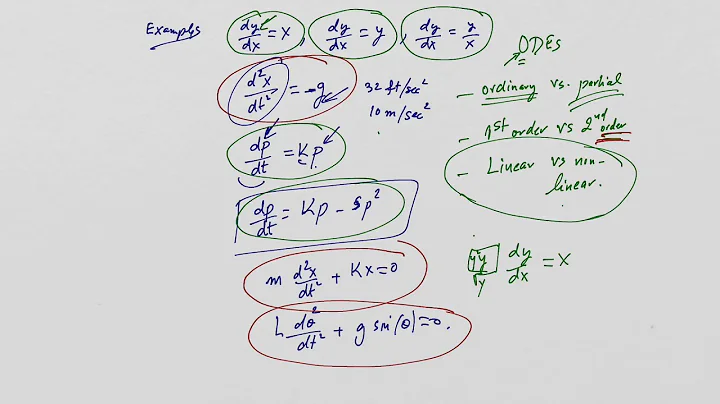 Examples dy/dx = x, dy/dx = y, dy/dx = y/x
ODEs
d²x/dt² = -g 32 ft/sec²
10 m/sec²
- ordinary vs. partial
- 1st order vs 2nd order
- Linear vs non-
linear.
dp/dt = Kp
dp/dt = Kp - sp²
dy/dx = x
√y
m d²x/dt² + Kx = 0
L dθ²/dt² + g sin(θ) = 0.